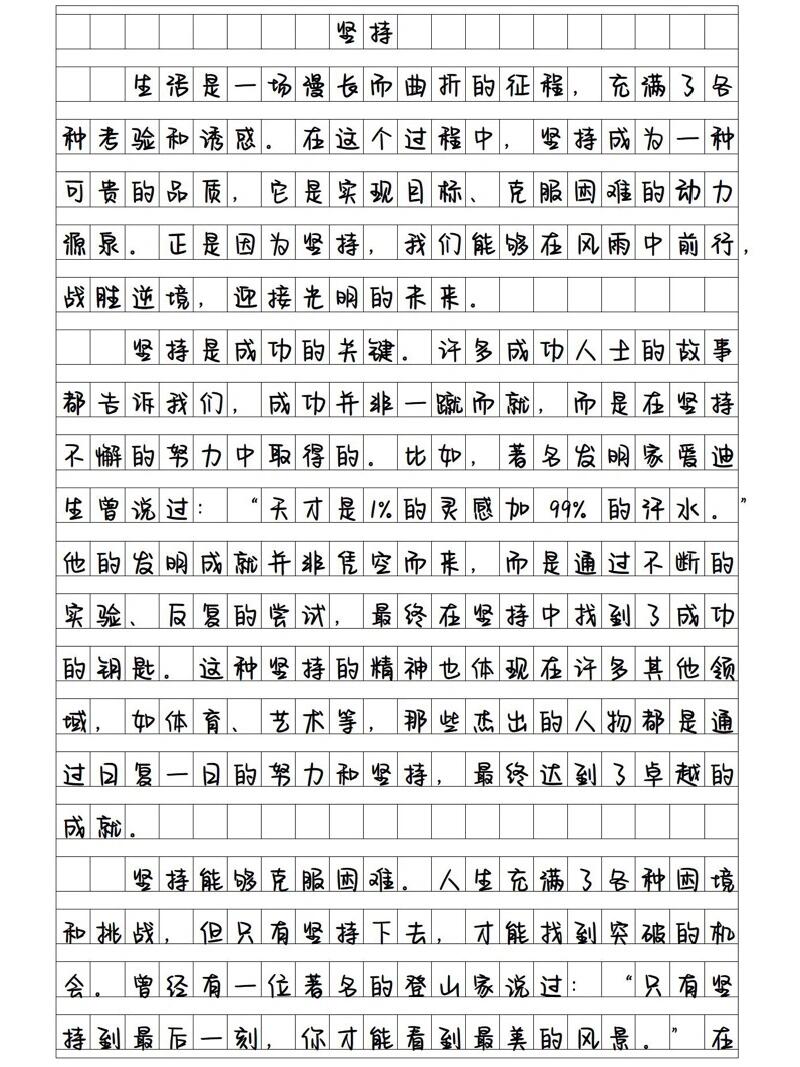 坚持
生活是一场漫长而曲折的征程，充满了各
种考验和诱惑。在这个过程中，坚持成为一种
可贵的品质，它是实现目标、克服困难的动力
源泉。正是因为坚持，我们能够在风雨中前行，
战胜逆境，迎接光明的未来。
坚持是成功的关键。许多成功人士的故事
都告诉我们，成功并非一蹴而就，而是在坚持
不懈的努力中取得的。比如，著名发明家爱迪
生曾说过：“天才是1%的灵感加99%的汗水。”
他的发明成就并非凭空而来，而是通过不断的
实验、反复的尝试，最终在坚持中找到了成功
的钥匙。这种坚持的精神也体现在许多其他领
域，如体育、艺术等，那些杰出的人物都是通
过日复一日的努力和坚持，最终达到了卓越的
成就。
坚持能够克服困难。人生充满了各种困境
和挑战，但只有坚持下去，才能找到突破的机
会。曾经有一位著名的登山家说过：“只有坚
持到最后一刻，你才能看到最美的风景。”在